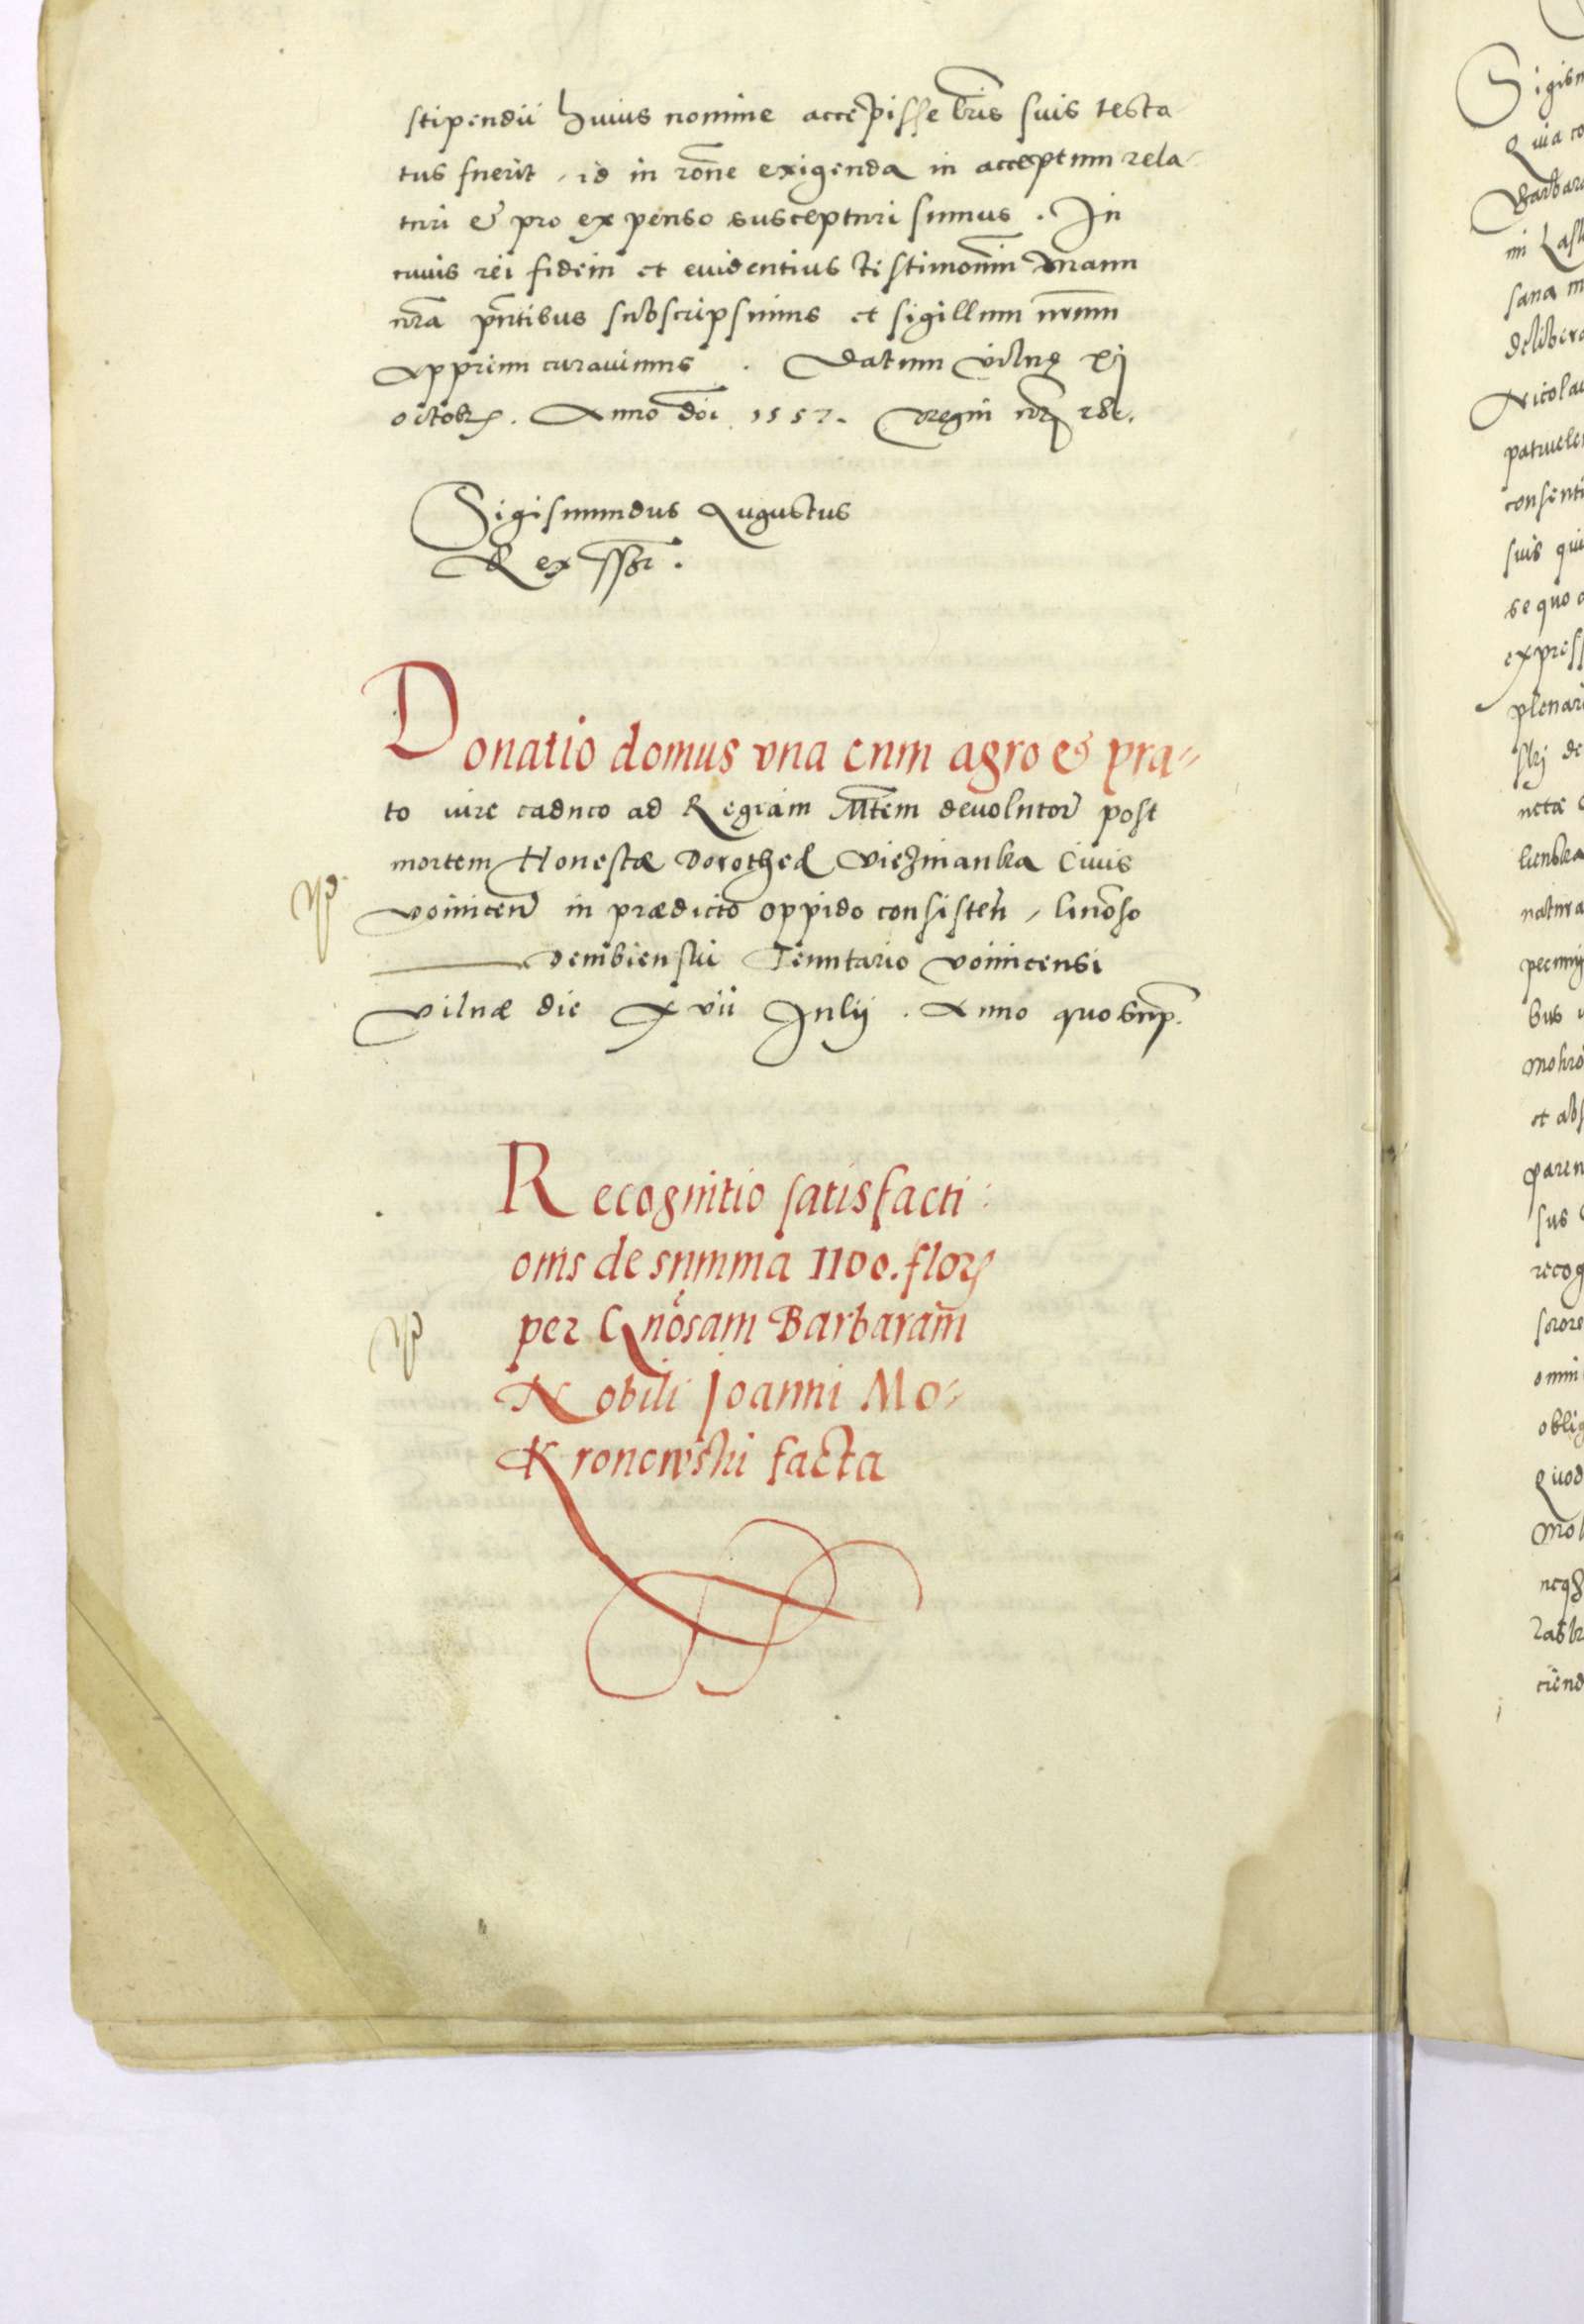 stipendii huius nomine accepisse lris suis testa
tus fuerit, id in rone exigenda in acceptum rela-
turi & pro expenso suscepturi sumus. In
cuius rei fidem et euidentius testimonim manu
nra pntibus subscripsimus et sigillum nrum
apprimi curauimus. Datum Vilnę xj
octobr. Anno doi 1557. Regni nri 28.
Sigismundus Augustus
Rex sst.
Donatio domus vna cum agro & pra-
to iure caduco ad Regiam Mtem deuolutor post
mortem Honestæ Dorotheæ Ciuis
Voinicen in prædicto oppido consisten, Gnoso
Dembienski Tenutario Voinicensi
Vilnæ die xvii Julij. Anno quo supr.
Recognitio satisfacti-
onis de summa 1100. flor
per Gnosam Barbaram
Nobili Joanni Mo-
kronowski facta
Sigism
Quia co
Barbara
ni Lask
sana m
delibera
Nicolau
patruele
consenti
suis qui
se quo a
express
plenari
skj de
natura
pecunij
bus
et abs
paren
sus
recog
sorore
omni
oblig
Quod
Mok
neqз